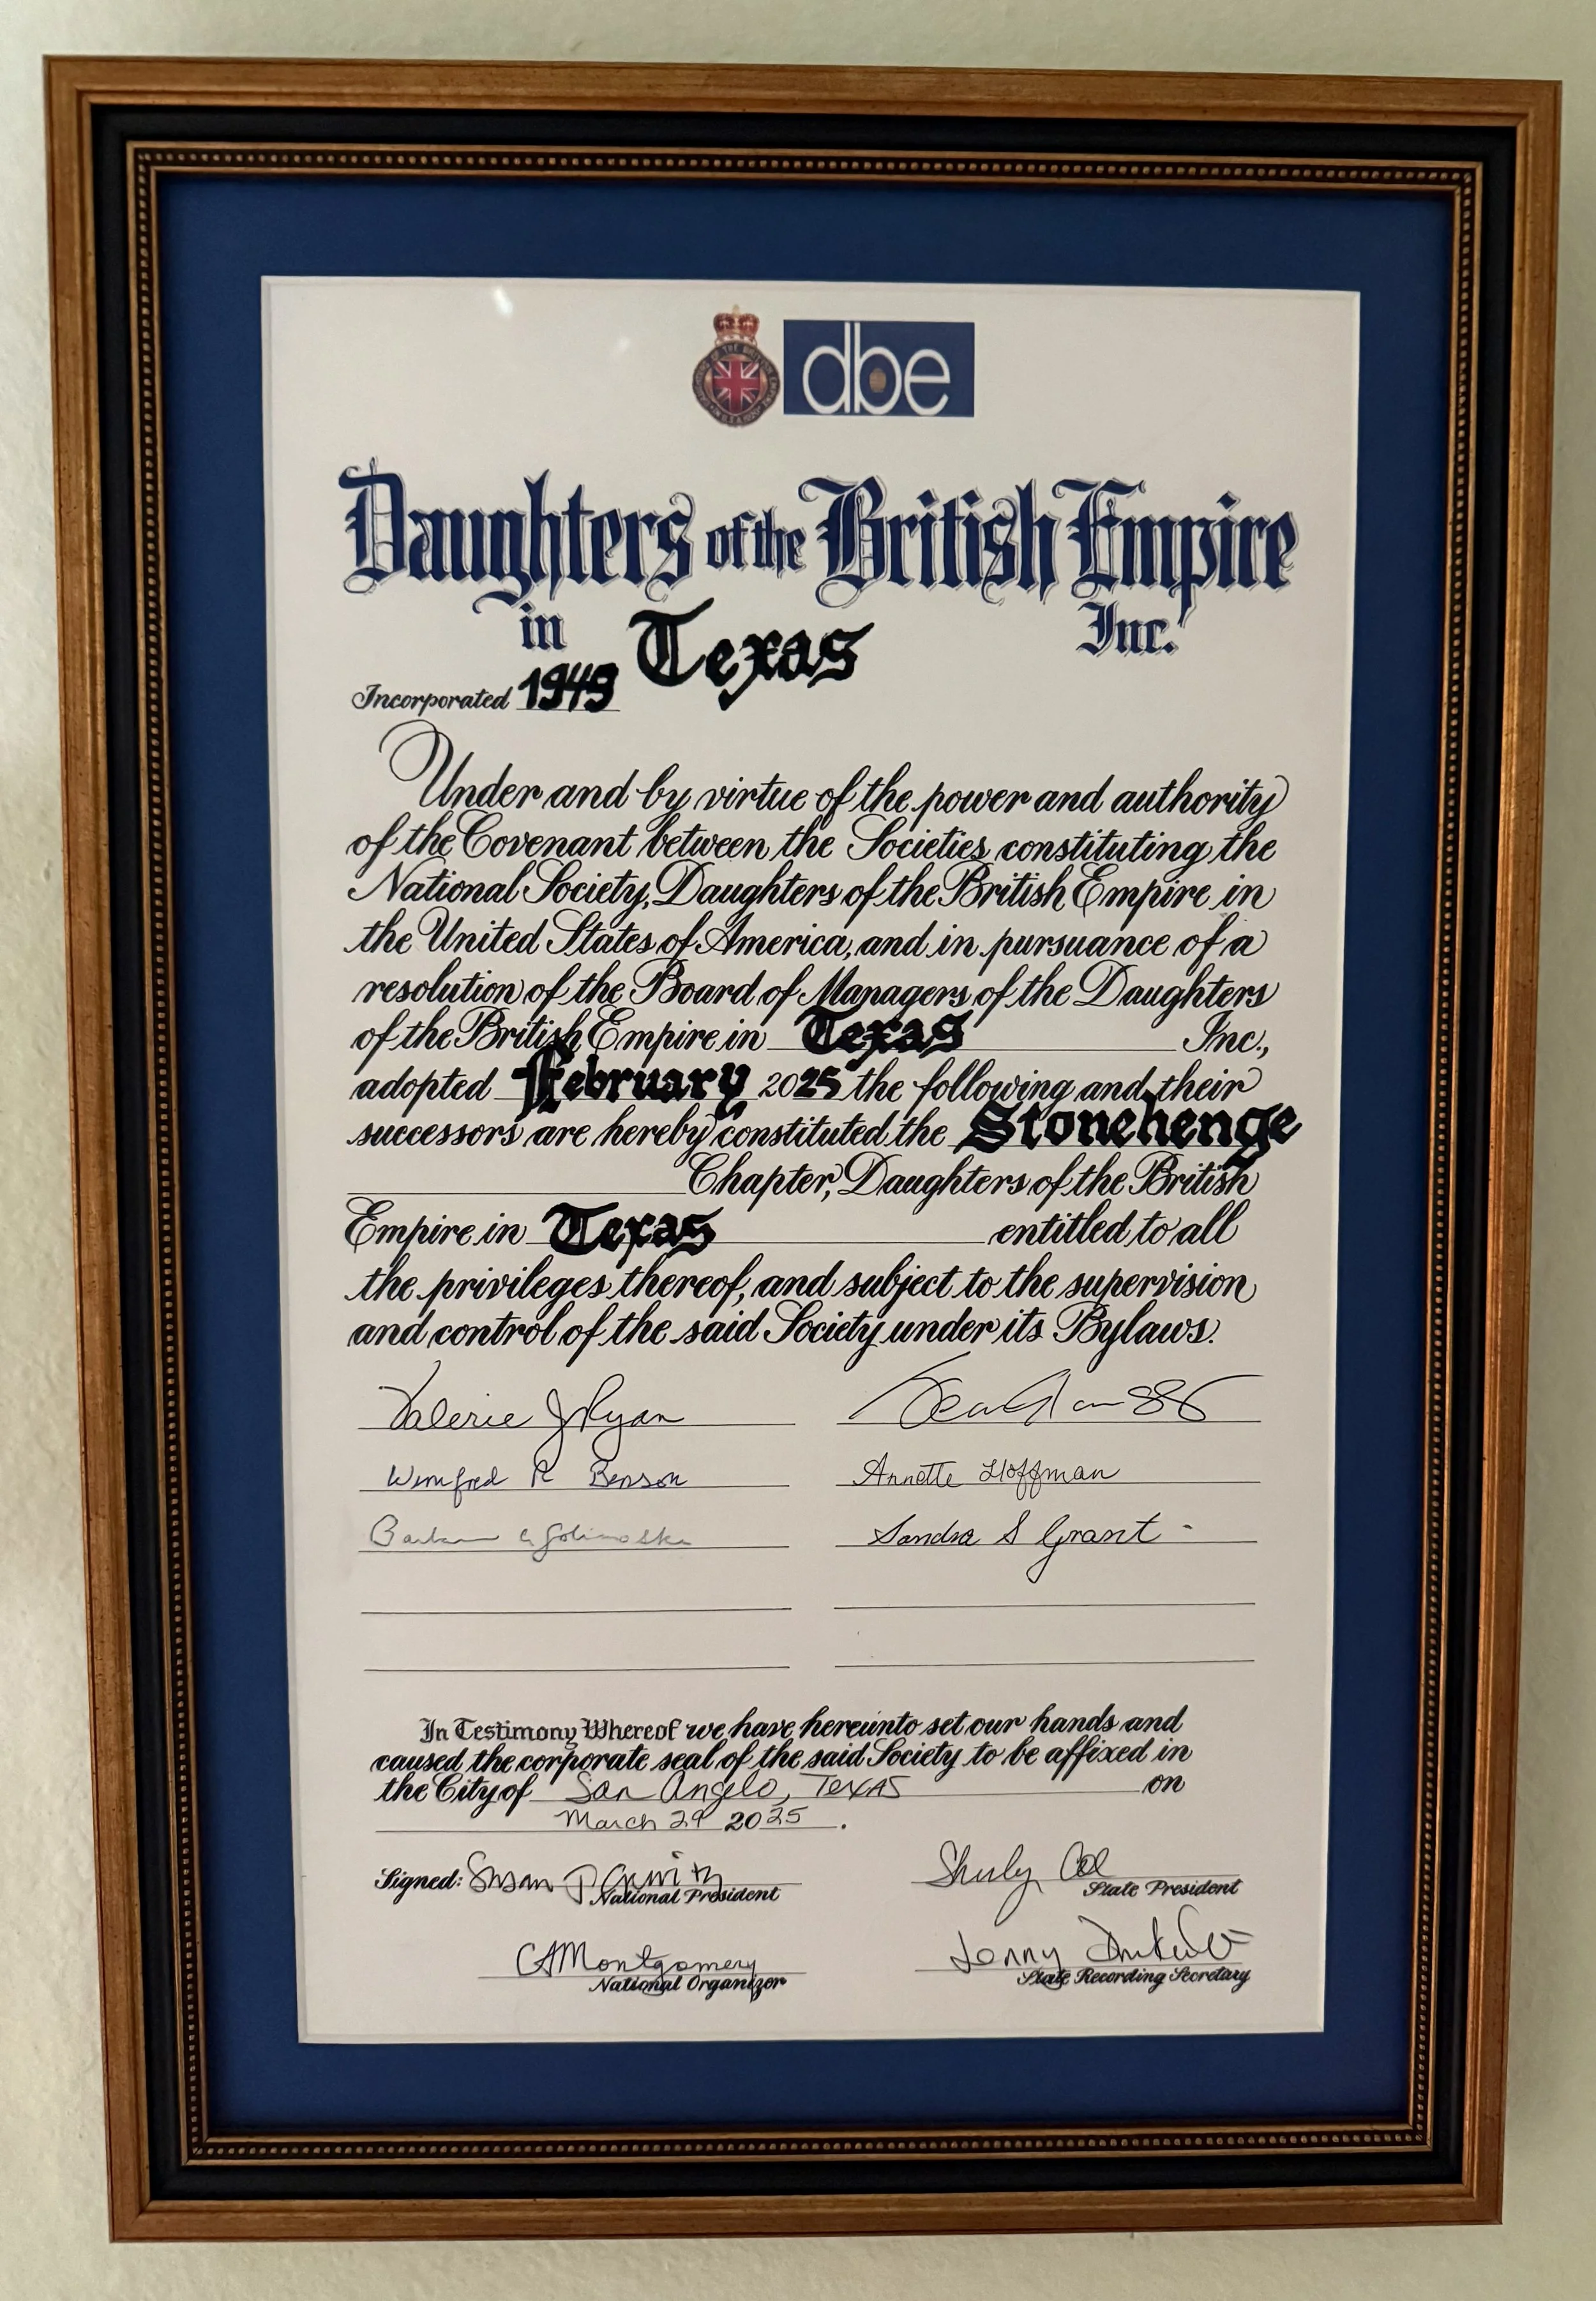 dbe
Daughters of the British Empire
in Texas Inc.
Incorporated 1949
Under and by virtue of the power and authority
of the Covenant between the Societies constituting the
National Society, Daughters of the British Empire in
the United States of America, and in pursuance of a
resolution of the Board of Managers of the Daughters
of the British Empire in Texas Inc.,
adopted February 2025 the following and their
successors are hereby constituted the Stonehenge
Chapter, Daughters of the British
Empire in Texas entitled to all
the privileges thereof, and subject to the supervision
and control of the said Society under its Bylaws.
Valerie J Ryan
Winifred R Benson Annette Hoffman
Sandra S Grant
In Testimony Whereof we have hereunto set our hands and
caused the corporate seal of the said Society to be affixed in
the City of San Angelo, Texas on
March 29 2025.
Signed: Susan
National President State President
CAMontgomery Jenny
National Organizer State Recording Secretary